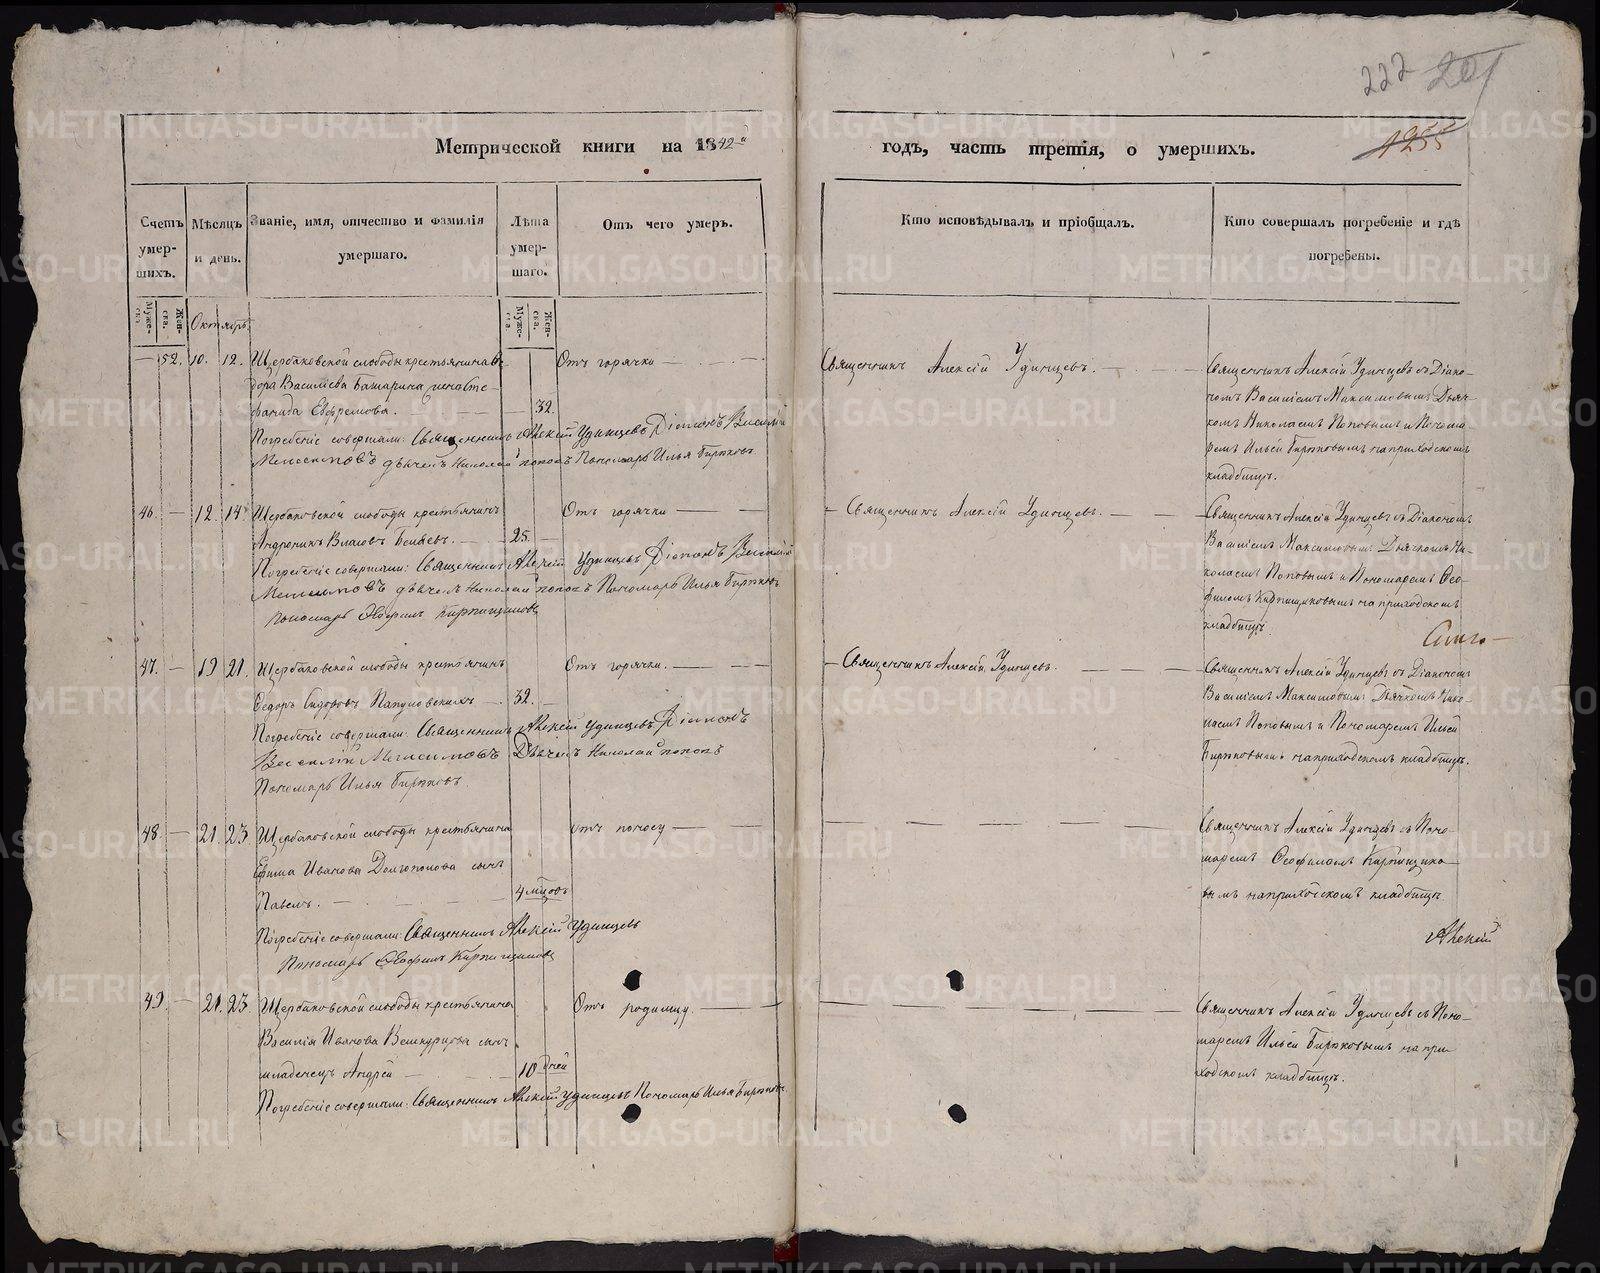 222 201
1255
Метрической книги на 1842й
годъ, часть третія, о умершихъ.
Счетъ умер-шихъ.
Мѣсяцъ и день.
Званіе, имя, отчество и фамилія умершаго.
Лѣта умер-шаго.
Отъ чего умеръ.
Кто исповѣдывалъ и пріобщалъ.
Кто совершалъ погребеніе и гдѣ погребены.
Муже-ска
Жен-ска.
Муже-ска.
Жен-ска.
Октябрь.
52. 10. 12. Щербаковской слободы крестьянина Ѳе-
дора Василіева Батарина жена Сте-
фанида Евфремова. 32.
Отъ горячки
Погребеніе совершали: Священникъ Алексій Удинцевъ Діаконъ Василій
Максимовъ дьячекъ Николай Поповъ Пономарь Илья Бирюковъ
Священникъ Алексій Удинцевъ.
Священникъ Алексій Удинцевъ съ Діако-
номъ Василіемъ Максимовымъ Дьяч-
комъ Николаемъ Поповымъ и Понома-
ремъ Ильей Бирюковымъ на приходскомъ
кладбищѣ.
46. 12. 14. Щербаковской слободы крестьянинъ
Андроникъ Власовъ 25.
Отъ горячки
Погребеніе совершали: Священникъ Алексій Удинцевъ Діаконъ Василій
Максимовъ дьячекъ Николай Поповъ Пономарь Илья Бирюковъ
пономарь Ѳеофилъ Кирпищиковъ
Священникъ Алексій Удинцевъ.
Священникъ Алексій Удинцевъ съ Діакономъ
Василіемъ Максимовымъ Дьячкомъ Ни-
колаемъ Поповымъ и Пономаремъ Ѳео-
филомъ Кирпищиковымъ на приходскомъ
кладбищѣ.
47. 19 21. Щербаковской слободы крестьянинъ
Ѳедоръ Сидоровъ 32.
Отъ горячки.
Погребеніе совершали: Священникъ Алексій Удинцевъ Діаконъ
Василій Максимовъ Дьячекъ Николай Поповъ
Пономарь Илья Бирюковъ.
Священникъ Алексій Удинцевъ.
Священникъ Алексій Удинцевъ съ Діакономъ
Василіемъ Максимовымъ Дьячкомъ Нико-
лаемъ Поповымъ и Пономаремъ Ильей
Бирюковымъ на приходскомъ кладбищѣ.
48. 21. 23 Щербаковской слободы крестьянина
Ефима Иванова Долгополова сынъ
Павелъ. 4 мѣцовъ
отъ поносу
Погребеніе совершали: Священникъ Алексій Удинцевъ
Пономарь Ѳеофилъ Кирпищиковъ
Священникъ Алексій Удинцевъ съ Поно-
маремъ Ѳеофиломъ Кирпищико-
вымъ на приходскомъ кладбищѣ.
Алексій
49. 21. 23. Щербаковской слободы крестьянина
Василія Иванова Вешкурцова сынъ
младенецъ Андрей 10 дней
Отъ родимцу.
Погребеніе совершали: Священникъ Алексій Удинцевъ Пономарь Илья Бирюковъ.
Священникъ Алексій Удинцевъ съ Поно-
маремъ Ильей Бирюковымъ на при-
ходскомъ кладбищѣ.
METRIKI.GASO-URAL.RU